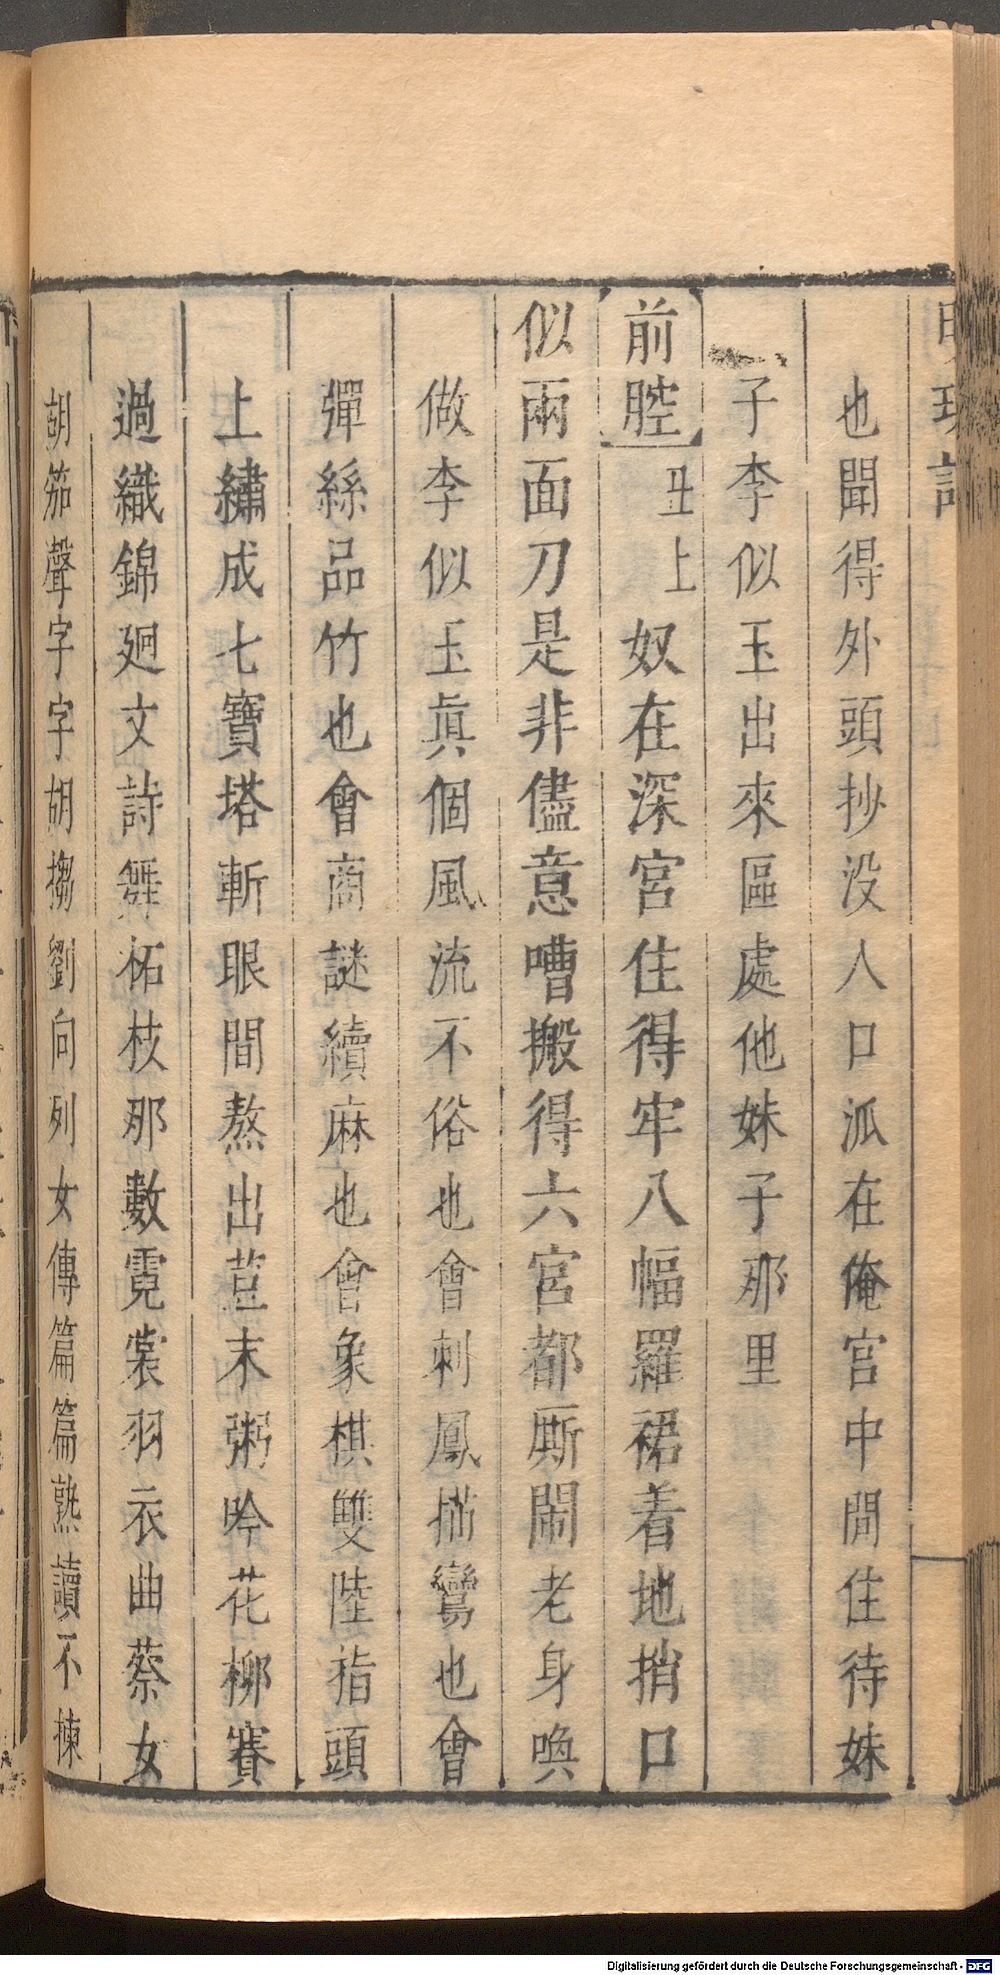 也聞得外頭抄没人口泒在俺宮中間住待妹
子李似玉出來區處他妹子那里
前腔 丑上 奴在深宮住得牢八幅羅裙着地捎口
似兩面刀是非儘意嘈搬得六宮都厮鬧老身喚
做李似玉眞個風流不俗也會刺鳳描鸞也會
彈絲品竹也會商謎續麻也會象棋雙陸指頭
上繡成七寶塔斬眼間熬出荳末粥吟花柳賽
過織錦廻文詩舞柘枝那數霓裳羽衣曲蔡女
胡笳聲字字胡搊劉向列女傳篇篇熟讀不揀
Digitalisierung gefördert durch die Deutsche Forschungsgemeinschaft - DFG